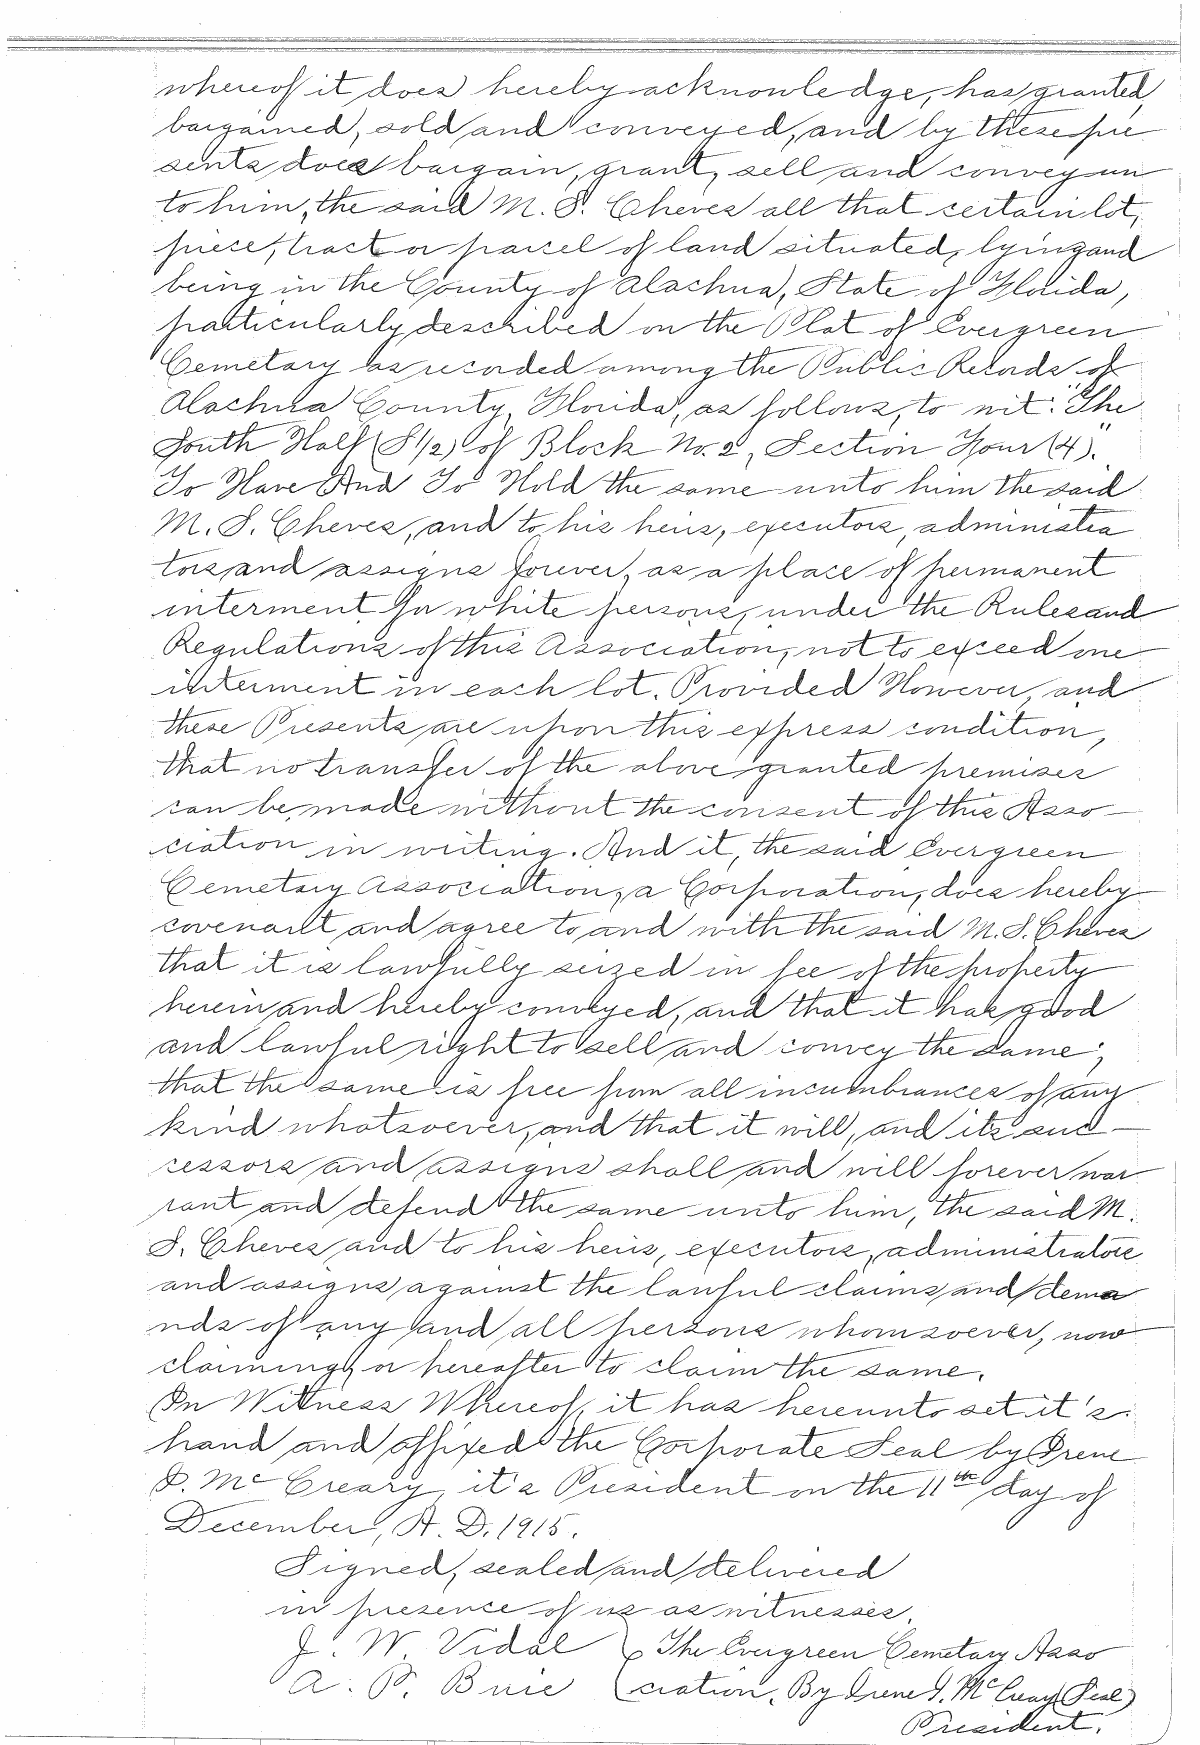 whereof it does hereby acknowledge, has granted,
bargained, sold and conveyed, and by these pre
sents does bargain, grant, sell and convey un
to him, the said M. S. Cheves all that certain lot,
piece, tract or parcel of land situated, lying and
being in the County of Alachua, State of Florida,
particularly described on the Plat of Evergreen
Cemetary as recorded among the Public Records of
Alachua County, Florida, as follows, to wit: "The
South Half (S1/2) of Block No. 2, Section Four (4)."
To Have And To Hold the same unto him the said
M. S. Cheves, and to his heirs, executors, administra
tors and assigns forever, as a place of permanent
interment for white persons, under the Rules and
Regulations of this Association, not to exceed one
interment in each lot. Provided However, and
these Presents are upon this express condition,
that no transfer of the above granted premises
can be made without the consent of this Asso-
ciation in writing. And it, the said Evergreen
Cemetary Association, a Corporation, does hereby
covenant and agree to and with the said M. S. Cheves
that it is lawfully seized in fee of the property
herein and hereby conveyed, and that it has good
and lawful right to sell and convey the same;
that the same is free from all incumbrances of any
kind whatsoever, and that it will, and its suc-
cessors and assigns shall and will forever war
rant and defend the same unto him, the said M.
S. Cheves and to his heirs, executors, administrators
and assigns against the lawful claims and dema
nds of any and all persons whomsoever, now
claiming or hereafter to claim the same.
In Witness Whereof, it has hereunto set it's
hand and affixed the Corporate Seal by Irene
I. McCreary, it's President on the 11th day of
December, A. D. 1915.
Signed, sealed and delivered
in presence of us as witnesses.
J. W. Vidal } The Evergreen Cemetary Asso
A. P. Buie ciation. By Irene I. McCreay (Seal)
President.